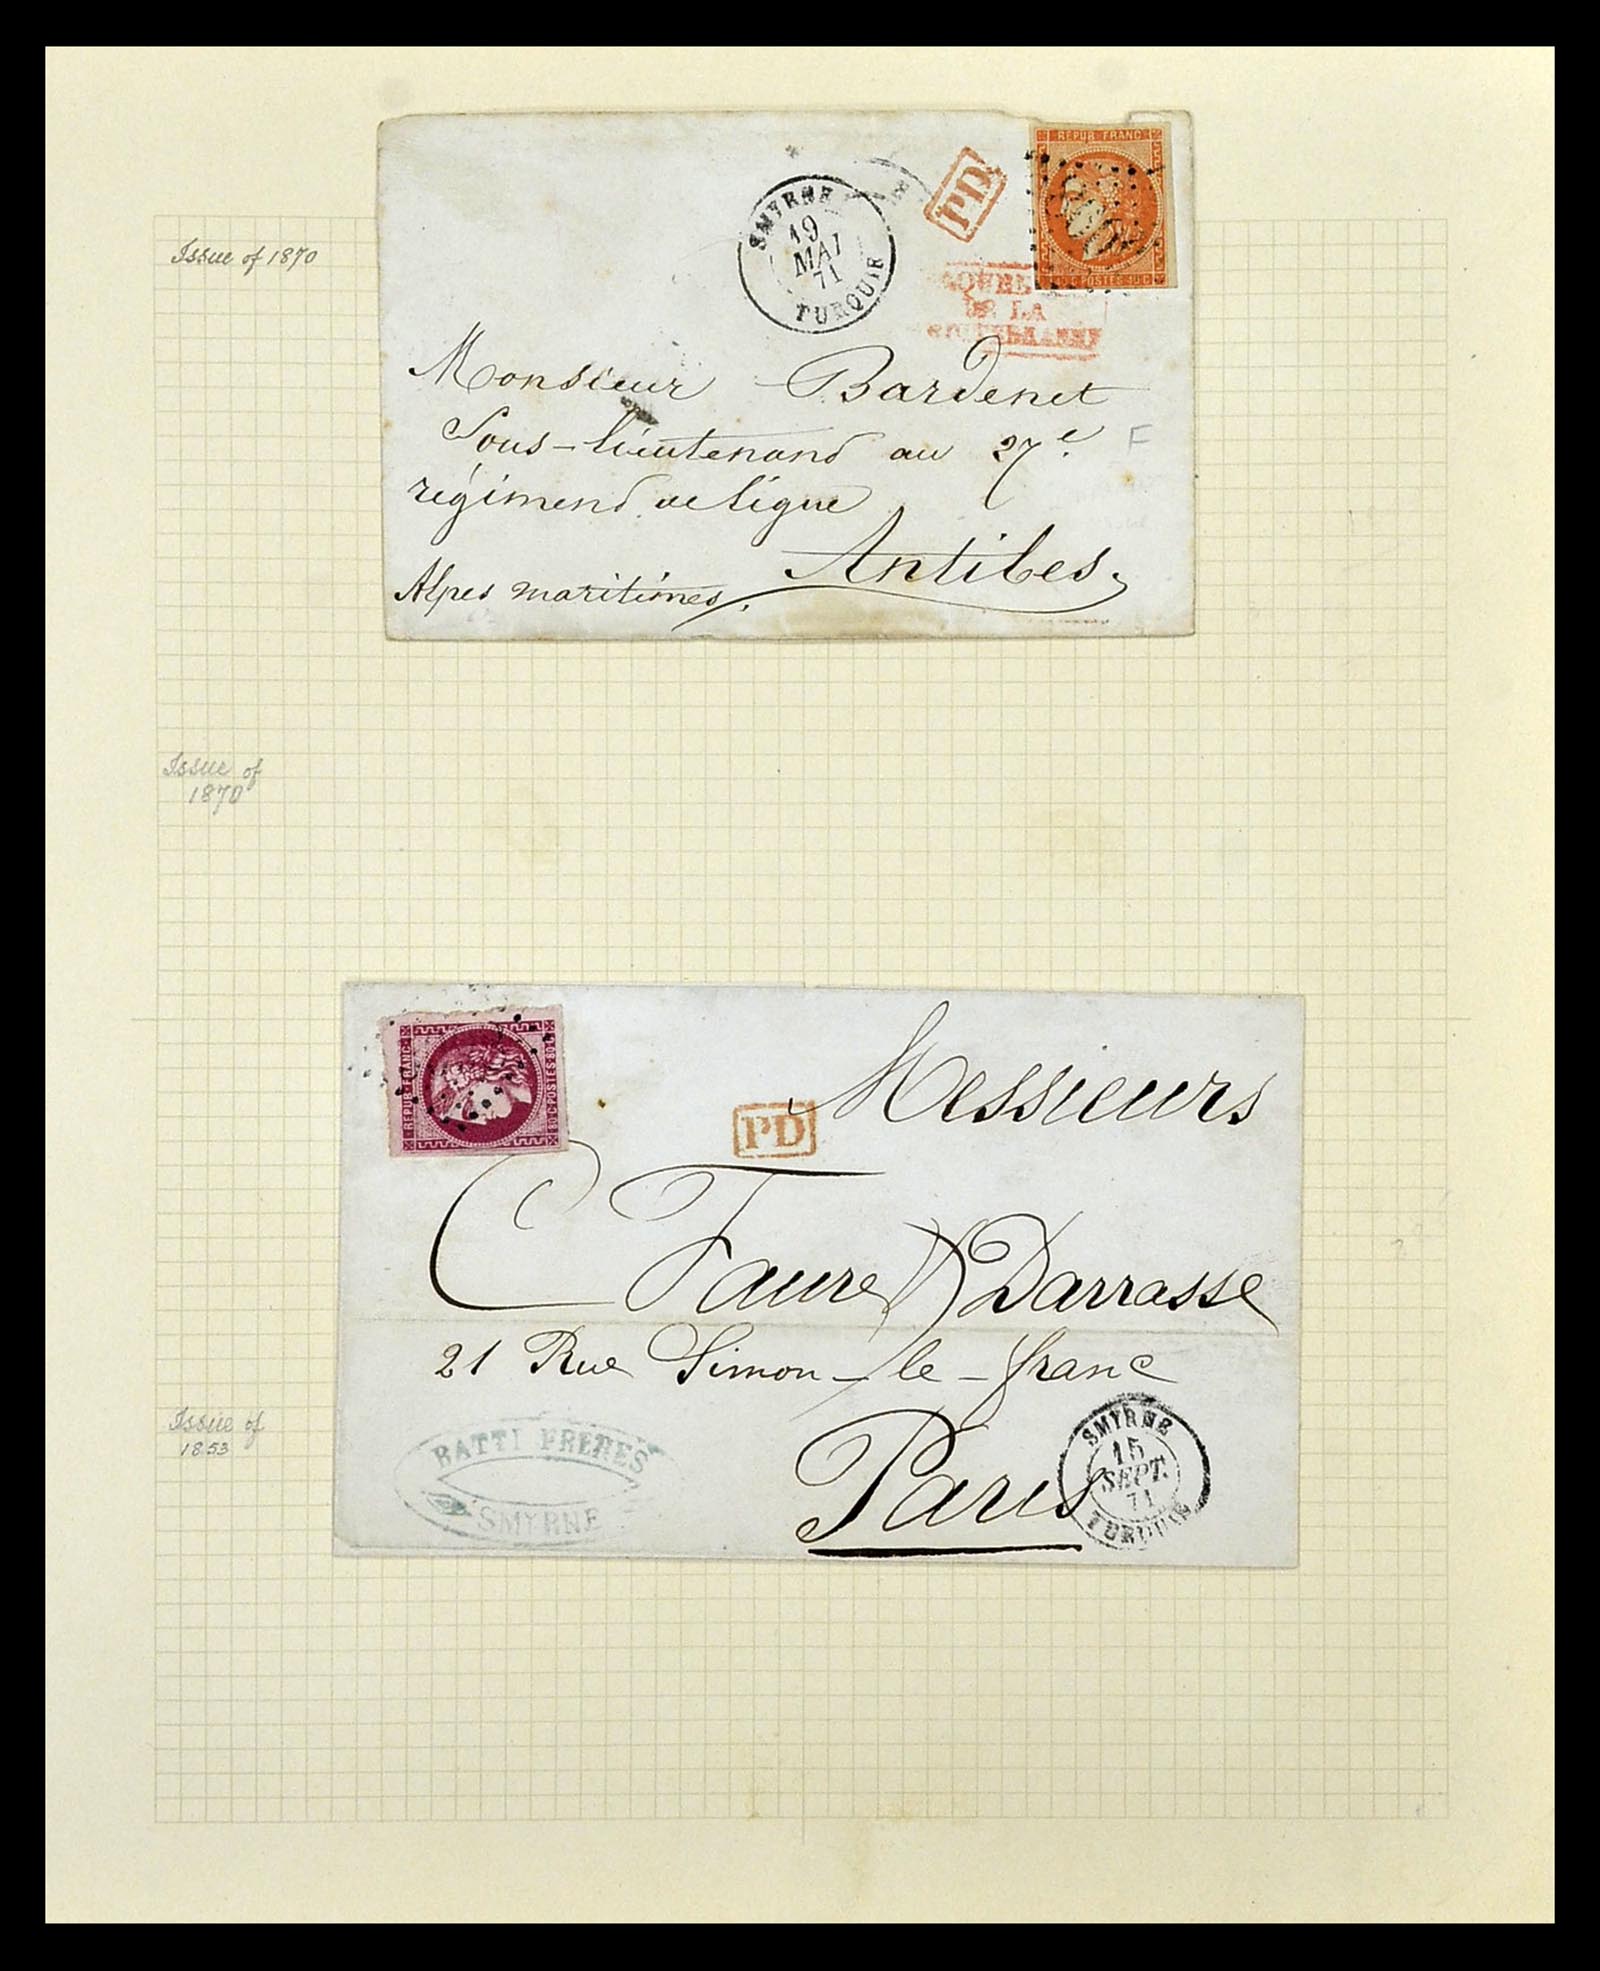 Issue of 1870
REPUB·FRANC
SMYRNE
19
MAI
71
TURQUIE
PD
DE LA
Monsieur Bardenet
Sous-lieutenand au 27e
F
régimend de ligne
Antibes,
Alpes maritimes.
Issue of
1870
REPUB·FRANC
80·C·POSTES·80·C
PD
Messieurs
Faure & Darrasse
21 Rue Simon-le-franc
Paris
SMYRNE
15
SEPT.
71
TURQUIE
BATTI FRERES
SMYRNE
Issue of
1853